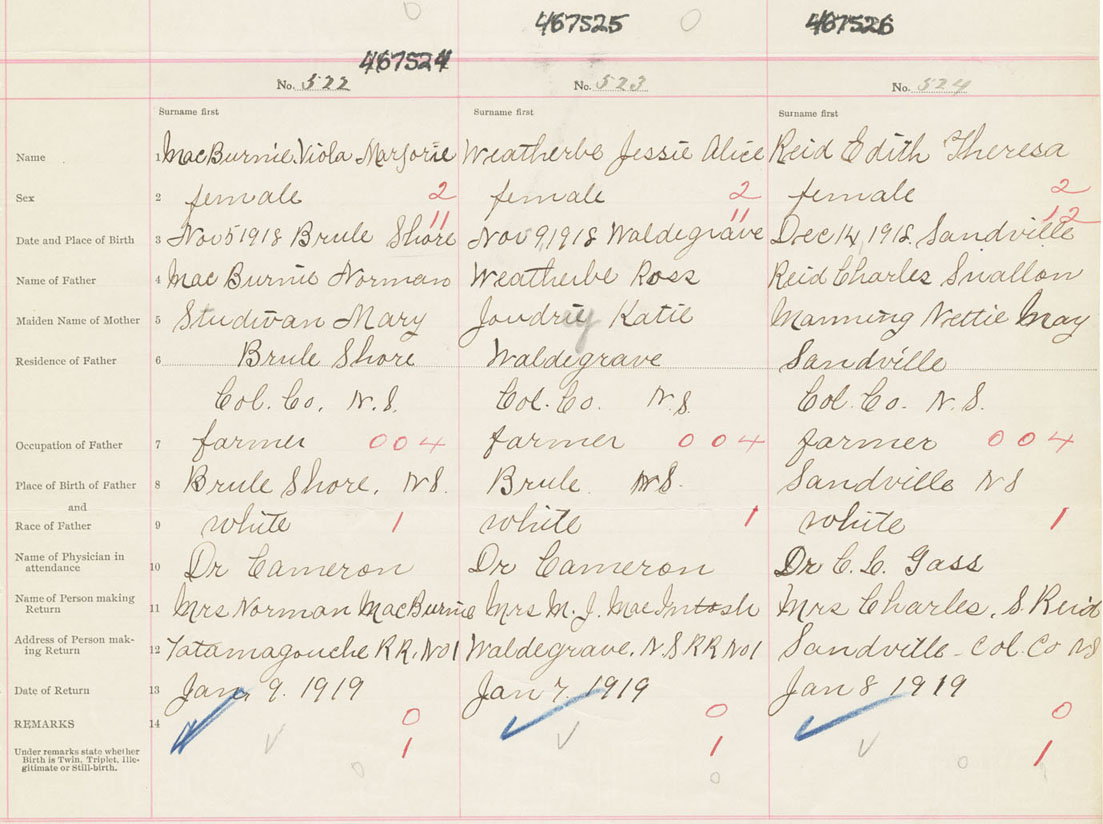 467525 467526
467524
No. 522 No. 523 No. 524
Surname first Surname first Surname first
Name 1 MacBurnie Viola Marjorie Weatherbe Jessie Alice Reid Edith Theresa
Sex 2 female 2 female 2 female 2
11 11 12
Date and Place of Birth 3 Nov 5 1918 Brule Shore Nov 9, 1918 Waldegrave Dec 14, 1918, Sandville
Name of Father 4 MacBurnie Norman Weatherbe Ross Reid Charles Swallow
Maiden Name of Mother 5 Studivan Mary Joudrie Katie Manning Nettie May
Residence of Father 6 Brule Shore Waldegrave Sandville
Col. Co. N.S. Col. Co. N.S. Col. Co. N.S.
Occupation of Father 7 farmer 004 farmer 004 farmer 004
Place of Birth of Father 8 Brule Shore, NS. Brule NS. Sandville NS
and
Race of Father 9 white 1 white 1 white 1
Name of Physician in
attendance 10 Dr Cameron Dr Cameron Dr C. L. Gass
Name of Person making
Return 11 Mrs Norman MacBurnie Mrs M. J. MacIntosh Mrs Charles. S Reid
Address of Person mak-
ing Return 12 Tatamagouche RR. No 1 Waldegrave, N.S RR No 1 Sandville - Col. Co NS
Date of Return 13 Jan, 9. 1919 Jan 7. 1919 Jan 8 1919
REMARKS 14 0 0 0
Under remarks state whether 1 1 1
Birth is Twin, Triplet, Ille-
gitimate or Still-birth.